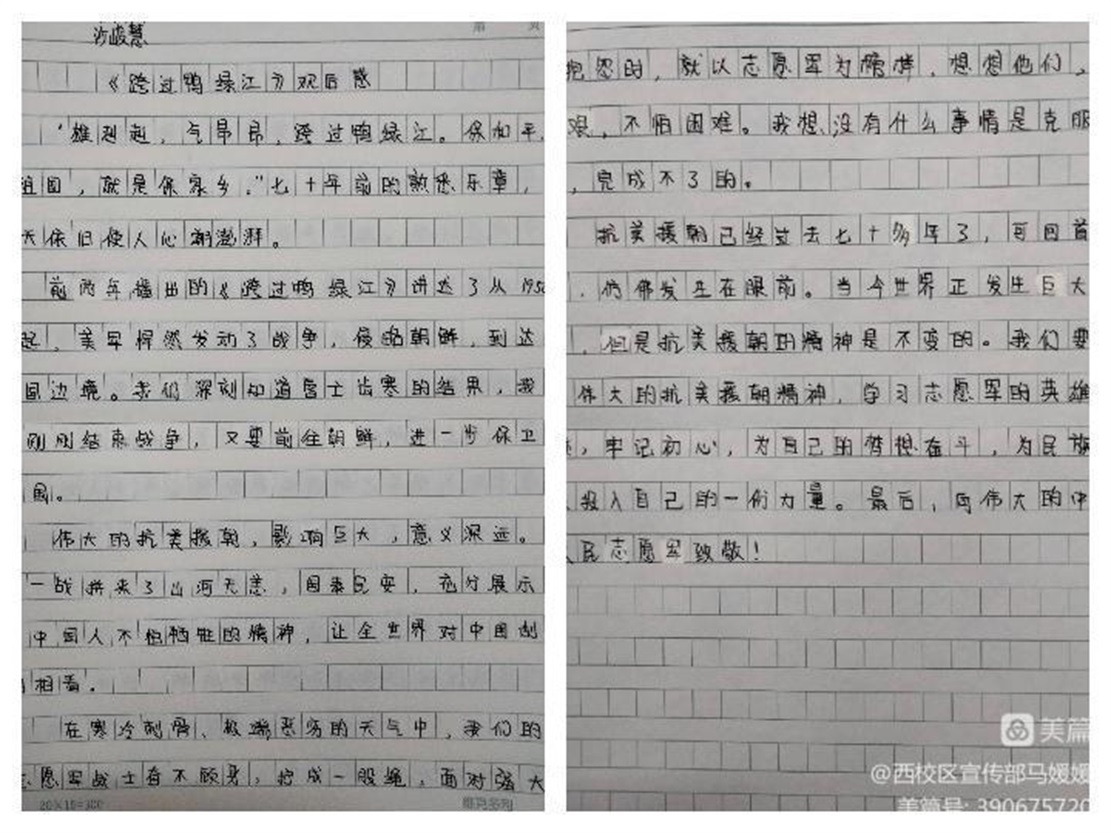 沙峻慧
第 页
《跨过鸭绿江》观后感
"雄赳赳，气昂昂，跨过鸭绿江。保和平，
祖国，就是保家乡。"七十年前的熟悉乐章，
天依旧使人心潮澎湃。
前两年播出的《跨过鸭绿江》讲述了从1950
起，美军悍然发动了战争，侵略朝鲜，到达
国边境。我们深刻知道唇亡齿寒的结果，我
刚刚结束战争，又要前往朝鲜，进一步保卫
国。
伟大的抗美援朝，影响巨大，意义深远。
一战拼来了山河无恙，国泰民安，充分展示
中国人不怕牺牲的精神，让全世界对中国刮
相看。
在寒冷刺骨、极端恶劣的天气中，我们的
志愿军战士奋不顾身，拧成一股绳，面对强大
20×15=300
抱怨时，就以志愿军为榜样，想想他们，
艰，不怕困难。我想，没有什么事情是克服
，完成不了的。
抗美援朝已经过去七十多年了，可回首
，仿佛发生在眼前。当今世界正发生巨大
，但是抗美援朝的精神是不变的。我们要
伟大的抗美援朝精神，学习志愿军的英雄
，牢记初心，为自己的梦想奋斗，为民族
投入自己的一份力量。最后，向伟大的中
人民志愿军致敬！
美篇
@西校区宣传部马媛媛
美篇号: 390675720